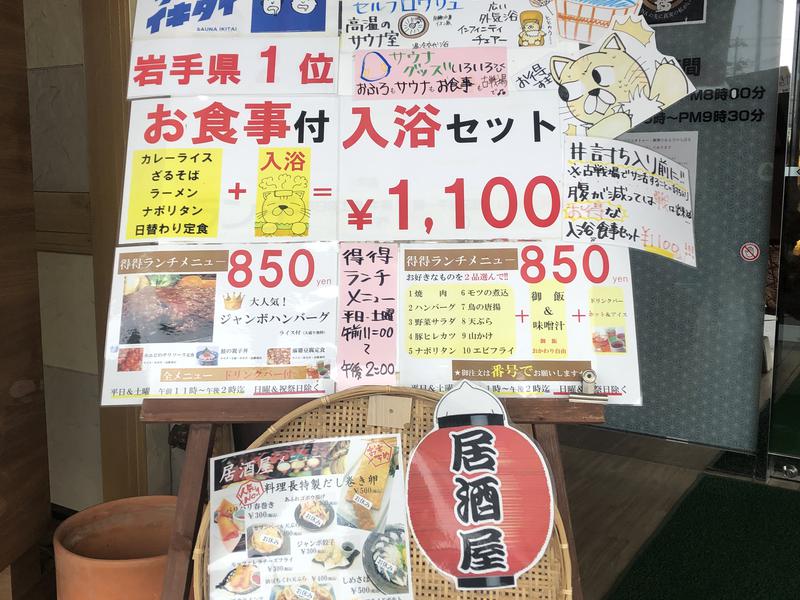 イキタイ
SAUNA IKITAI
岩手県1位
セルフロウリュ
高温の
サウナ室
広い
外気浴
インフィニティ
チェアー
サウナ
グッズいろいろ
おふろもサウナもお食事も古戦場で
お得
お食事付 入浴セット
カレーライス
ざるそば
ラーメン
ナポリタン
日替わり定食
+
入浴
=
¥1,100
間
AM8時00分
時~PM9時30分
#討ち入り前に
腹が減っては
お得な
入浴食事セット¥1,100
得得ランチメニュー
850yen
大人気!
ジャンボハンバーグ
ライス付
全メニュー ドリンクバー付
平日&土曜 午前11時~午後2時迄 日曜&祝祭日除く
得得
ランチ
メニュー
平日・土曜
午前11:00
~
午後2:00
得得ランチメニュー
お好きなものを2品選んで!!
850yen
1 焼 肉 6 モツの煮込
2 ハンバーグ 7 鳥の唐揚
3 野菜サラダ 8 天ぷら
4 豚ヒレカツ 9 山かけ
5 ナポリタン 10 エビフライ
+
御飯
&
味噌汁
御飯
おかわり自由
+
ドリンクバー
ホット&アイス
★御注文は番号でお願いします
平日&土曜 午前11時~午後2時迄 日曜&祝祭日除く
居酒屋
料理長特製だし巻き卵
¥500
人気No.1
パリパリ春巻き
¥300
あふれゴボウ揚げ
お休み
お休み
ジャンボ餃子
¥300
¥400
しめさば
¥500
お休み
居酒屋